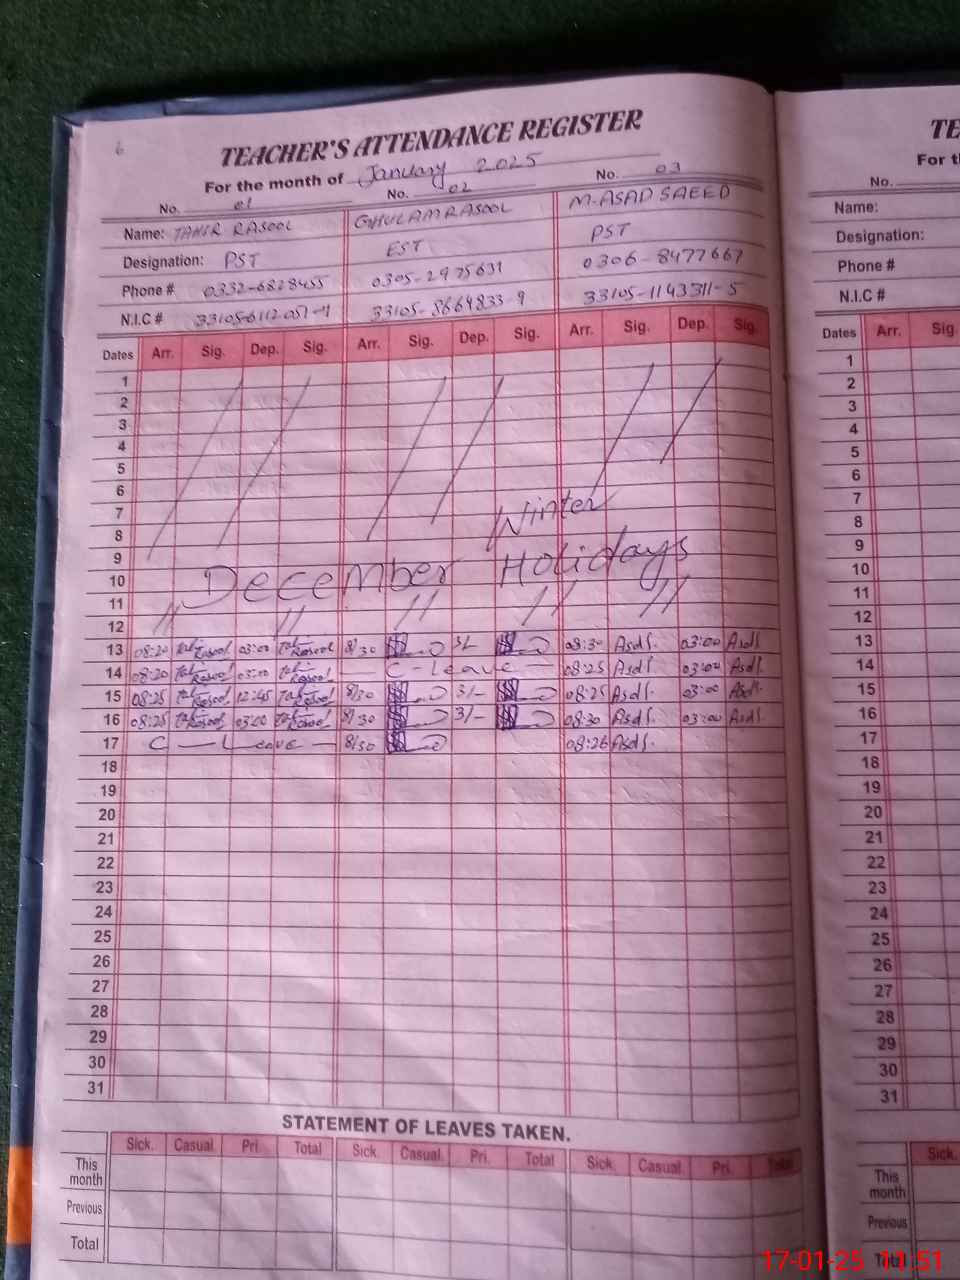 6
TEACHER'S ATTENDANCE REGISTER
For the month of January 2025
No. 01 No. 02 No. 03
Name: TAHIR RASOOL GHULAM RASOOL M-ASAD SAEED
Designation: PST EST PST
Phone # 0332-6828455 0305-2975631 0306-8477667
N.I.C # 33105-6112051-11 33105-8664833-9 33105-1143311-5
Dates Arr. Sig. Dep. Sig. Arr. Sig. Dep. Sig. Arr. Sig. Dep. Sig.
1
2
3
4
5
6
7
8 Winter
9
10 December Holidays
11
12
13 08:20 Rasool 03:00 Rasool 8/30 3/- 08:30 Asdf. 03:00 Asdf
14 08:20 Rasool 03:00 Rasool C-Leave 08:25 Asdf. 03:00 Asdf
15 08:25 Rasool 12:45 Rasool 8/30 3/- 08:25 Asdf. 03:00 Asdf.
16 08:25 Rasool 03:00 Rasool 8/30 3/- 08:30 Asdf. 03:00 Asdf.
17 C-Leave 8/30 08:26 Asdf.
18
19
20
21
22
23
24
25
26
27
28
29
30
31
STATEMENT OF LEAVES TAKEN.
Sick. Casual Pri. Total Sick. Casual. Pri. Total Sick. Casual. Pri. Total
This month
Previous
Total
TE
For th
No.
Name:
Designation:
Phone #
N.I.C #
Dates Arr. Sig.
1
2
3
4
5
6
7
8
9
10
11
12
13
14
15
16
17
18
19
20
21
22
23
24
25
26
27
28
29
30
31
Sick.
This month
Previous
Total
17-01-25 11:51